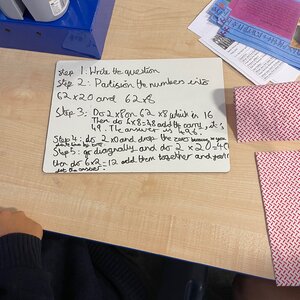 Step 1: Write the question
Step 2: Partision the numbers into
62x20 and 62x8
Step 3: Do 2x8 on 62 x8 which is 16
Then do 6x8=48 add the carry, it's
49. The answer is 496.
Step 4: do 2 x0 and drop the zero because
Step 5: go diagnally and do 2 x 20=40
then do 6x2=12 add them together and
got the answer.